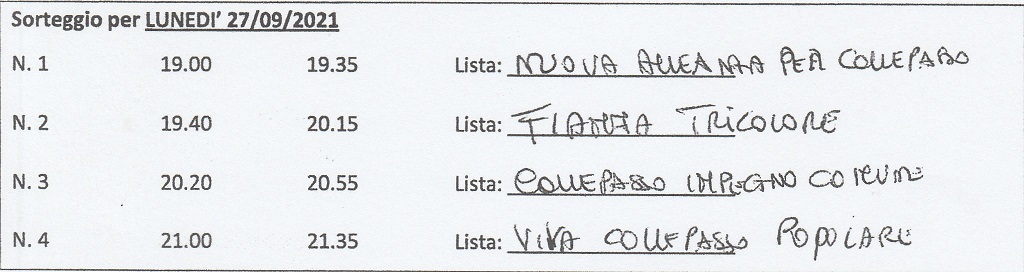 Sorteggio per LUNEDI' 27/09/2021
N. 1 19.00 19.35 Lista: NUOVA ALLEANZA PER COLLEPASSO
N. 2 19.40 20.15 Lista: FIAMMA TRICOLORE
N. 3 20.20 20.55 Lista: COLLEPASSO IMPEGNO COMUNE
N. 4 21.00 21.35 Lista: VIVA COLLEPASSO POPOLARE